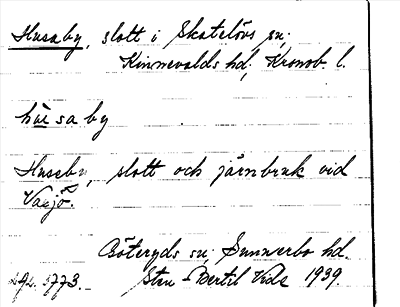 Husaby, slott i Skatelövs sn;
Kinnevalds hd; Kronob. l.
hùsaby
Huseby, slott och järnbruk vid
Vaxjö.
Göteryds sn; Sunnerbo hd.
Sten-Bertil Vide 1939.